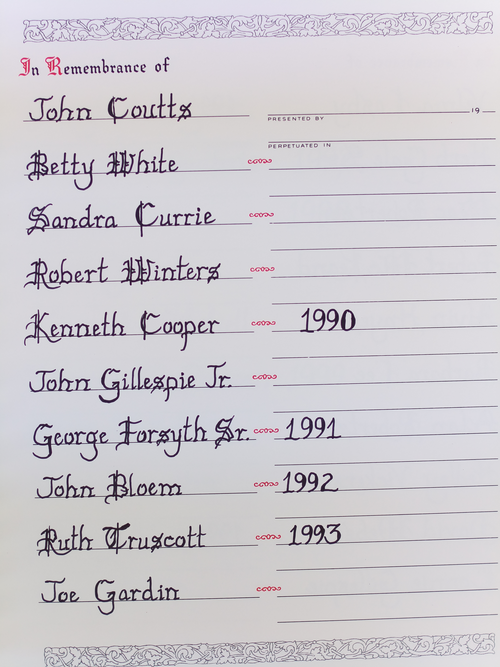 In Remembrance of
John Coutts
19
PRESENTED BY
PERPETUATED IN
Betty White
Sandra Currie
Robert Winters
Kenneth Cooper 1990
John Gillespie Jr.
George Forsyth Sr. 1991
John Bloem 1992
Ruth Truscott 1993
Joe Gardin